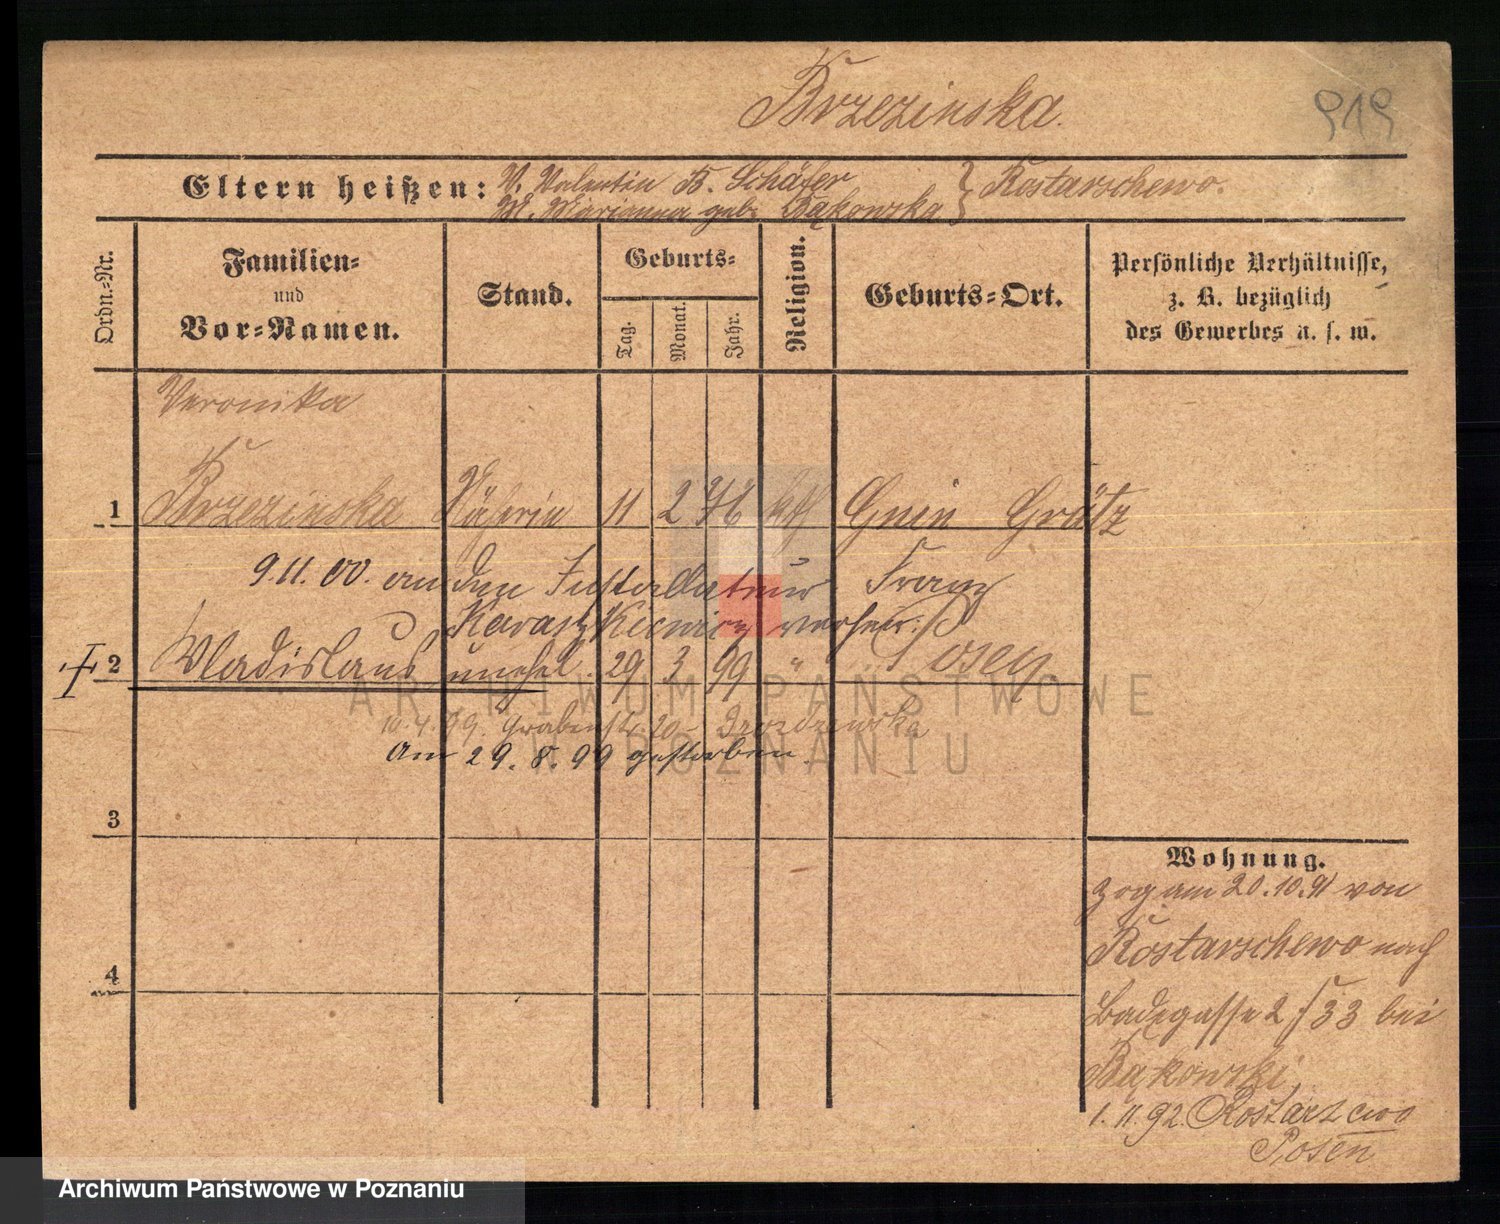 Brzezinska.
919
Eltern heißen: V. Valentin B. Schäfer } Rostarschewo.
M. Marianna geb. Bąkowska
Ordn.-Nr.
Familien-
und
Vor-Namen.
Stand.
Geburts-
Tag.
Monat.
Jahr.
Religion.
Geburts-Ort.
Persönliche Verhältnisse,
z. B. bezüglich
des Gewerbes u. s. w.
Veronika
1 Brzezinska Näherin 11 2 76 kth Gnin Grätz
9.11.00. an den Franz
verheir.
2 Wladislaus unehel. 29 3 99 " Posen.
10.4.99. Grabenstr. 20
Am 29.8.99 gestorben.
3
4
Wohnung.
Zog am 20.10.91 von
Rostarschewo nach
Badegasse 2/33 bei
Bąkowski,
1.11.92. Rostarzewo
Posen
ARCHIWUM PAŃSTWOWE
W POZNANIU
Archiwum Państwowe w Poznaniu